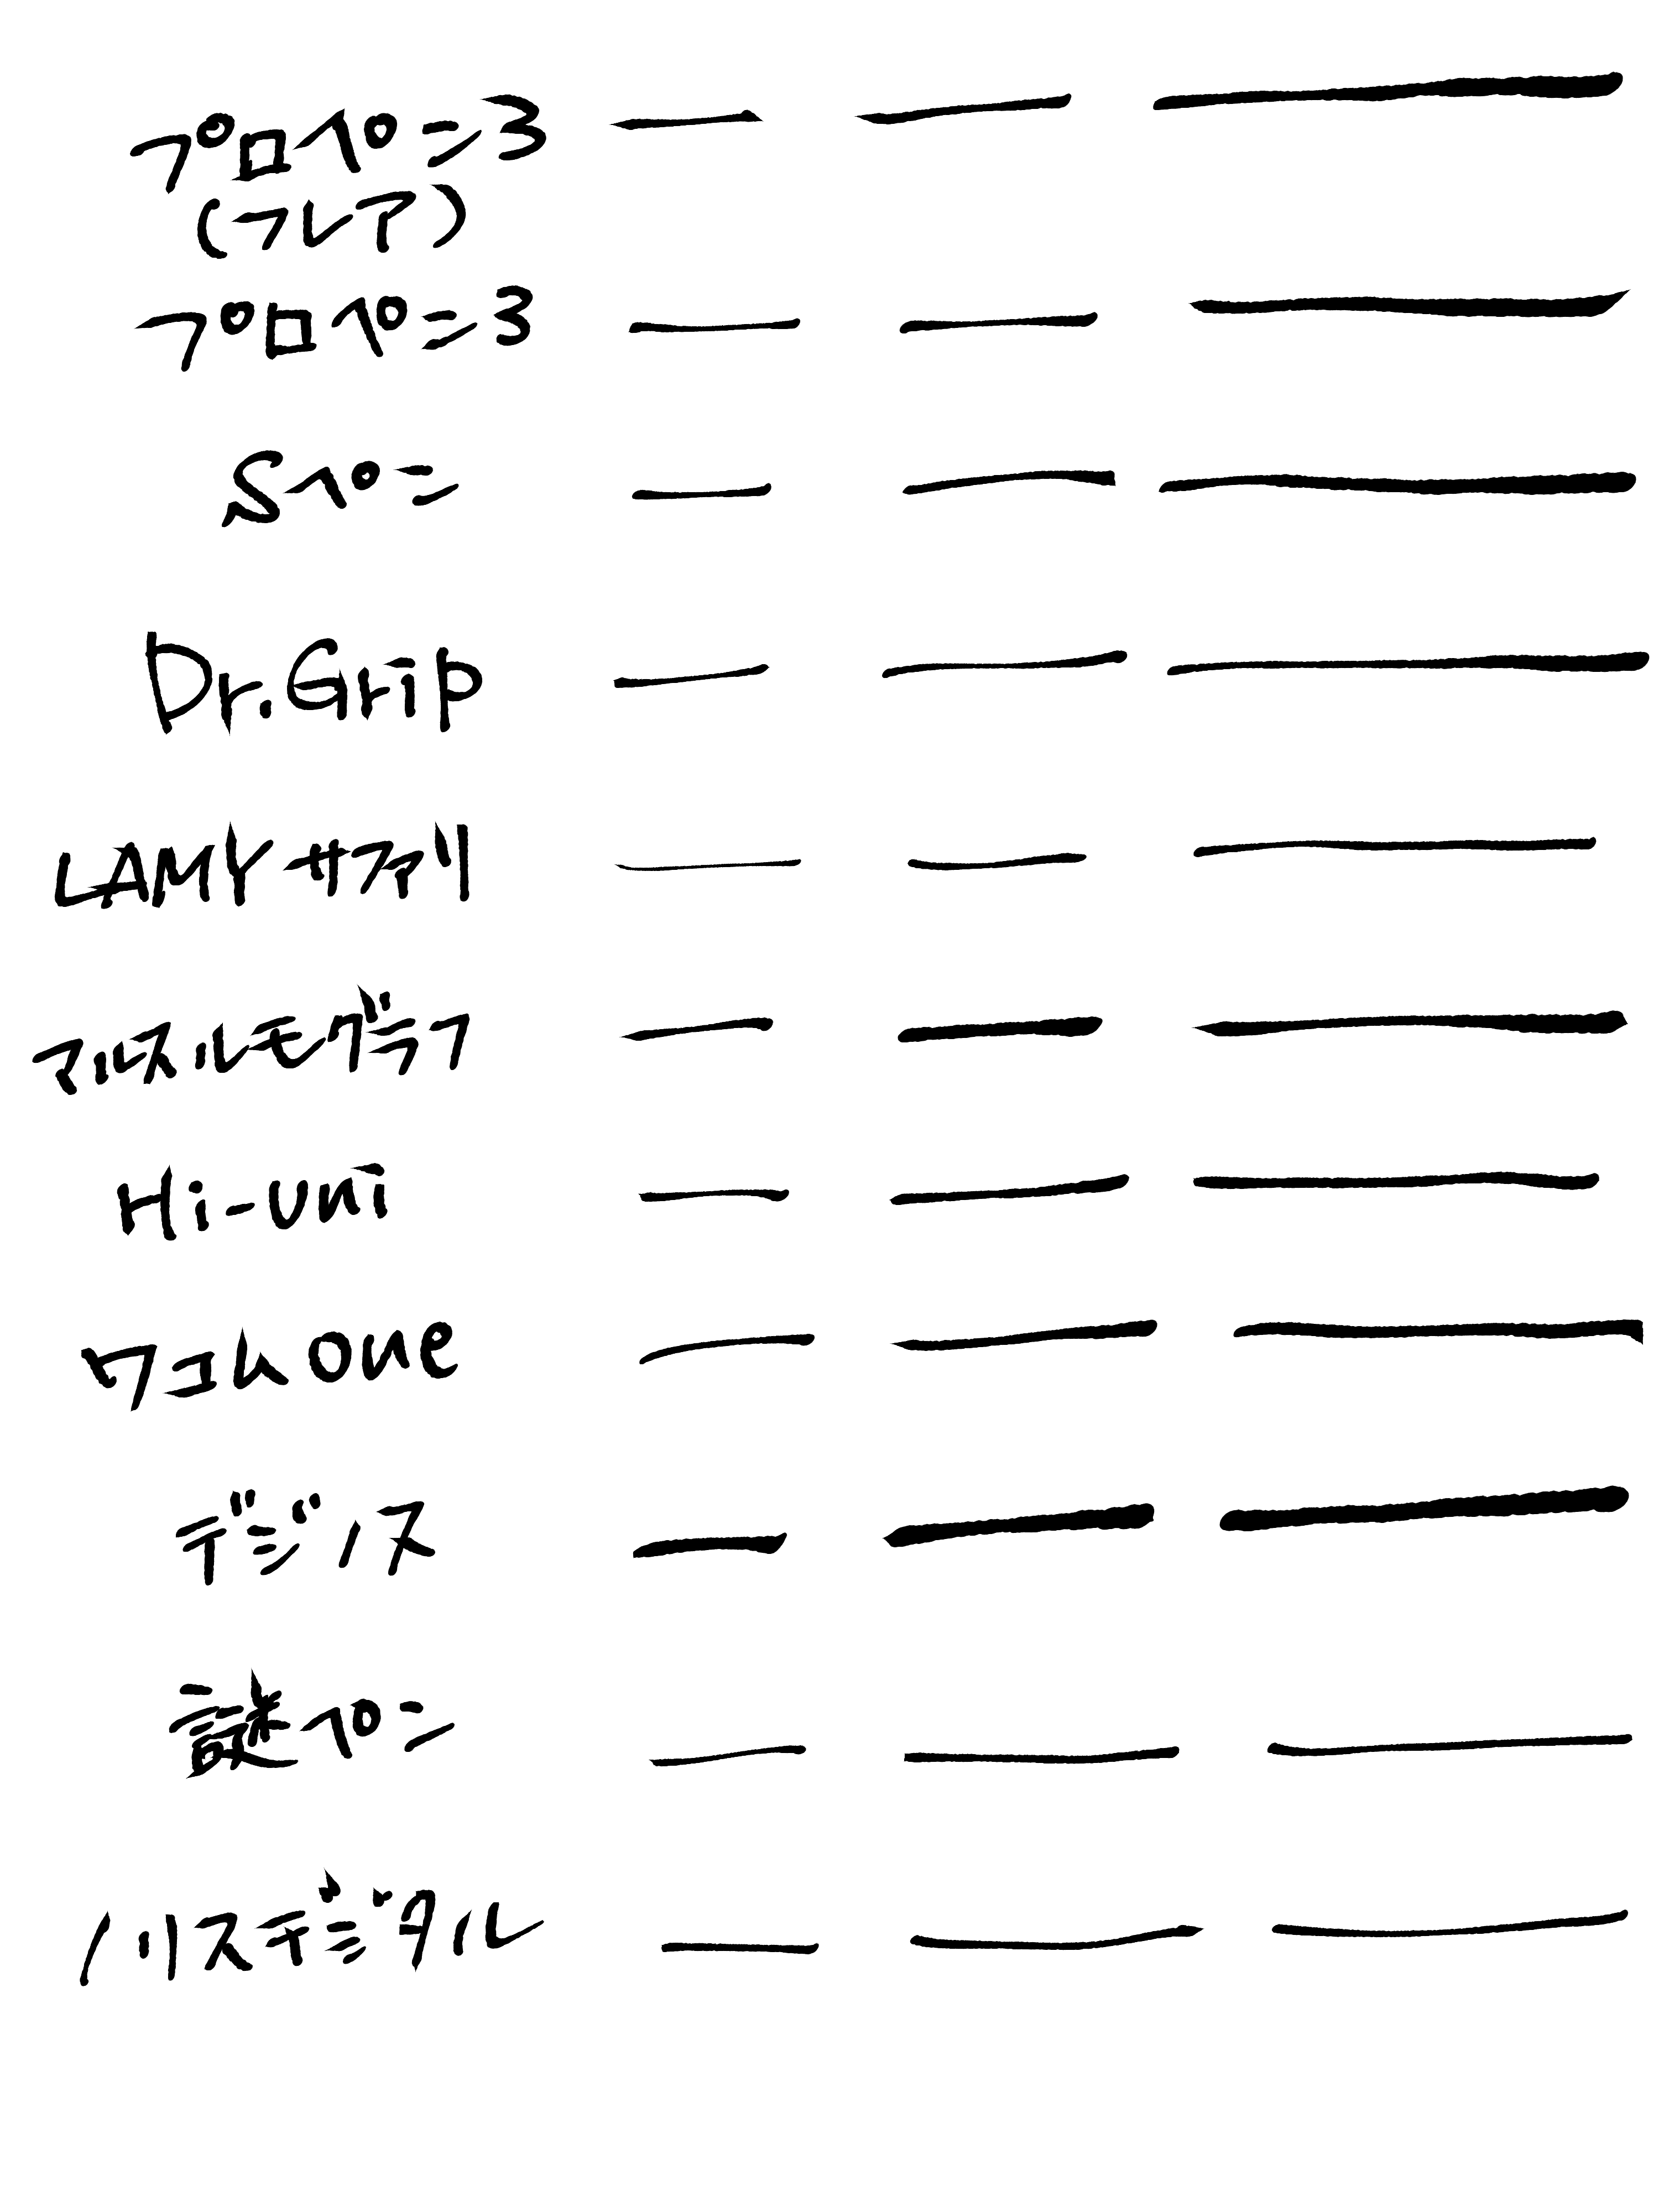 プロペン3
(フレア)
プロペン3
Sペン
Dr.Grip
LAMYサファリ
マルスルモグラフ
Hi-uni
ワコムone
デジノス
謎ペン
ノリスデジタル